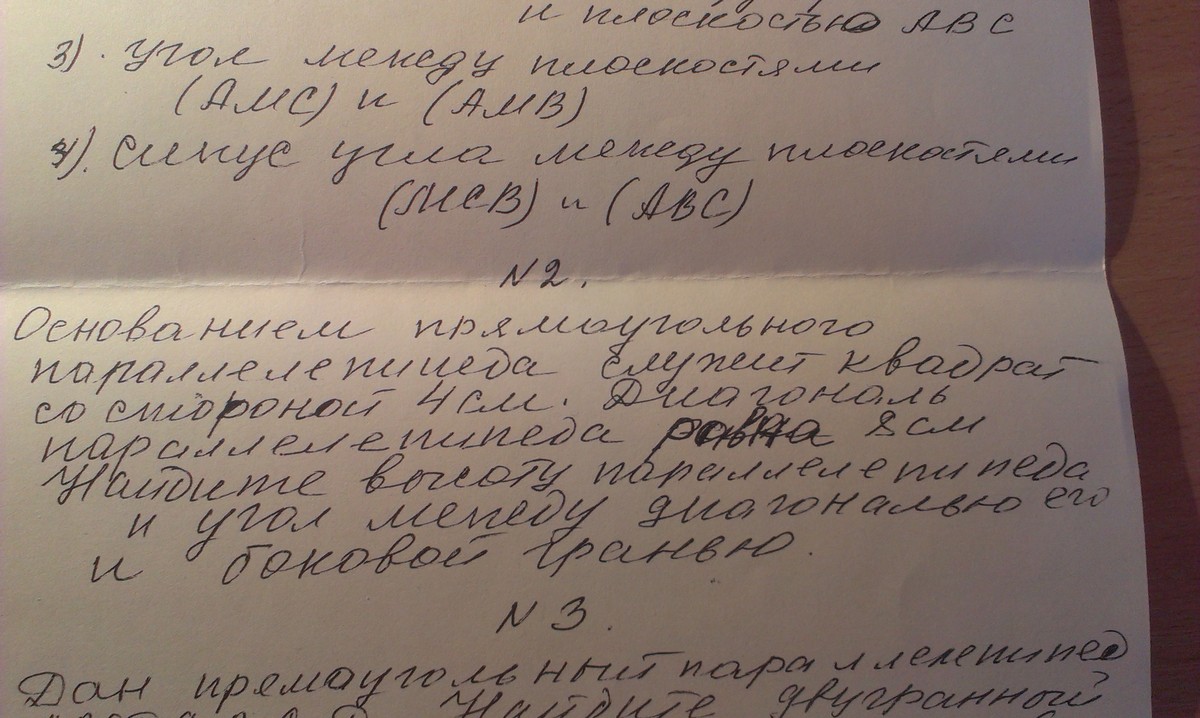 и плоскостью АВС
3). угол между плоскостями
(АМС) и (АМВ)
4). синус угла между плоскостями
(МСВ) и (АВС)
N2.
Основанием прямоугольного
параллелепипеда служит квадрат
со стороной 4 см. Диагональ
параллелепипеда равна 8 см
Найдите высоту параллелепипеда
и угол между диагональю его
и боковой гранью.
N 3.
Дан прямоугольный параллелепипед
Найдите двугранный